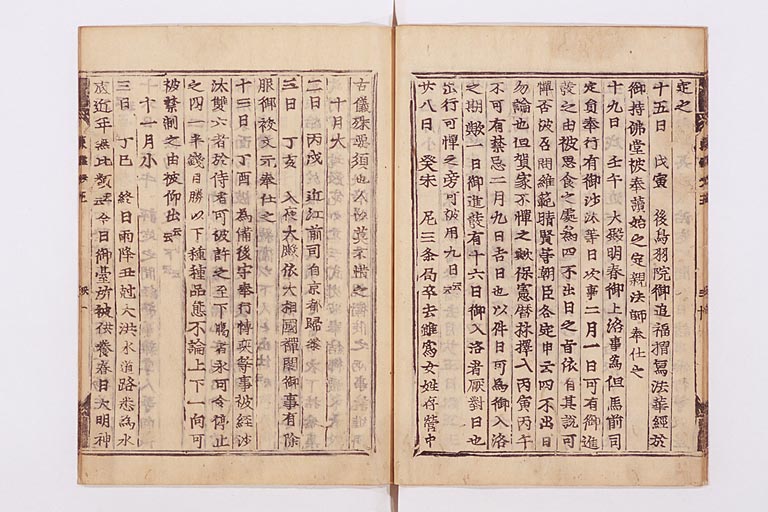 定之
十五日 戊寅 後鳥羽院御追福摺寫法華經於
御持佛堂被奉讃始之定親法師奉仕之
十九日 壬午 大殿明春御上洛事為但馬前司
定員奉行有御沙汰等日次事二月一日可有御進
發之由被思食之處為四不出日之旨依有其說可
憚否泼召問維範晴賢等朝臣各定申云四不出日
勿論也但賀家不憚之歟保憲暦林擇入丙寅丙午
不可有禁忌二月九日吉日也以件日可為御入洛
之期歟一日御進發有十六日御入洛者厭對日也
出行可憚之旁可被用九日云云
廿八日 癸未 尼三条局卒去雖為女姓存營中
古儀殊要須也
十月大
二日 丙戌 近江前司自京都歸参
三日 丁亥 入夜大殿依大相國禪閤御事有除
服御祓文示奉仕之
十三日 丁酉 為備後守奉行博奕等事被經沙
汰雙六者於侍者可被許之至下﨟者永可令停止
之四一半錢目勝以下種種品態不論上下一向可
被禁制之由被仰出云云
十一月小
三日 丁巳 終日雨降丑尅大洪水道路悉為水
放近年無比類云云今日御臺所被供養春日大明神